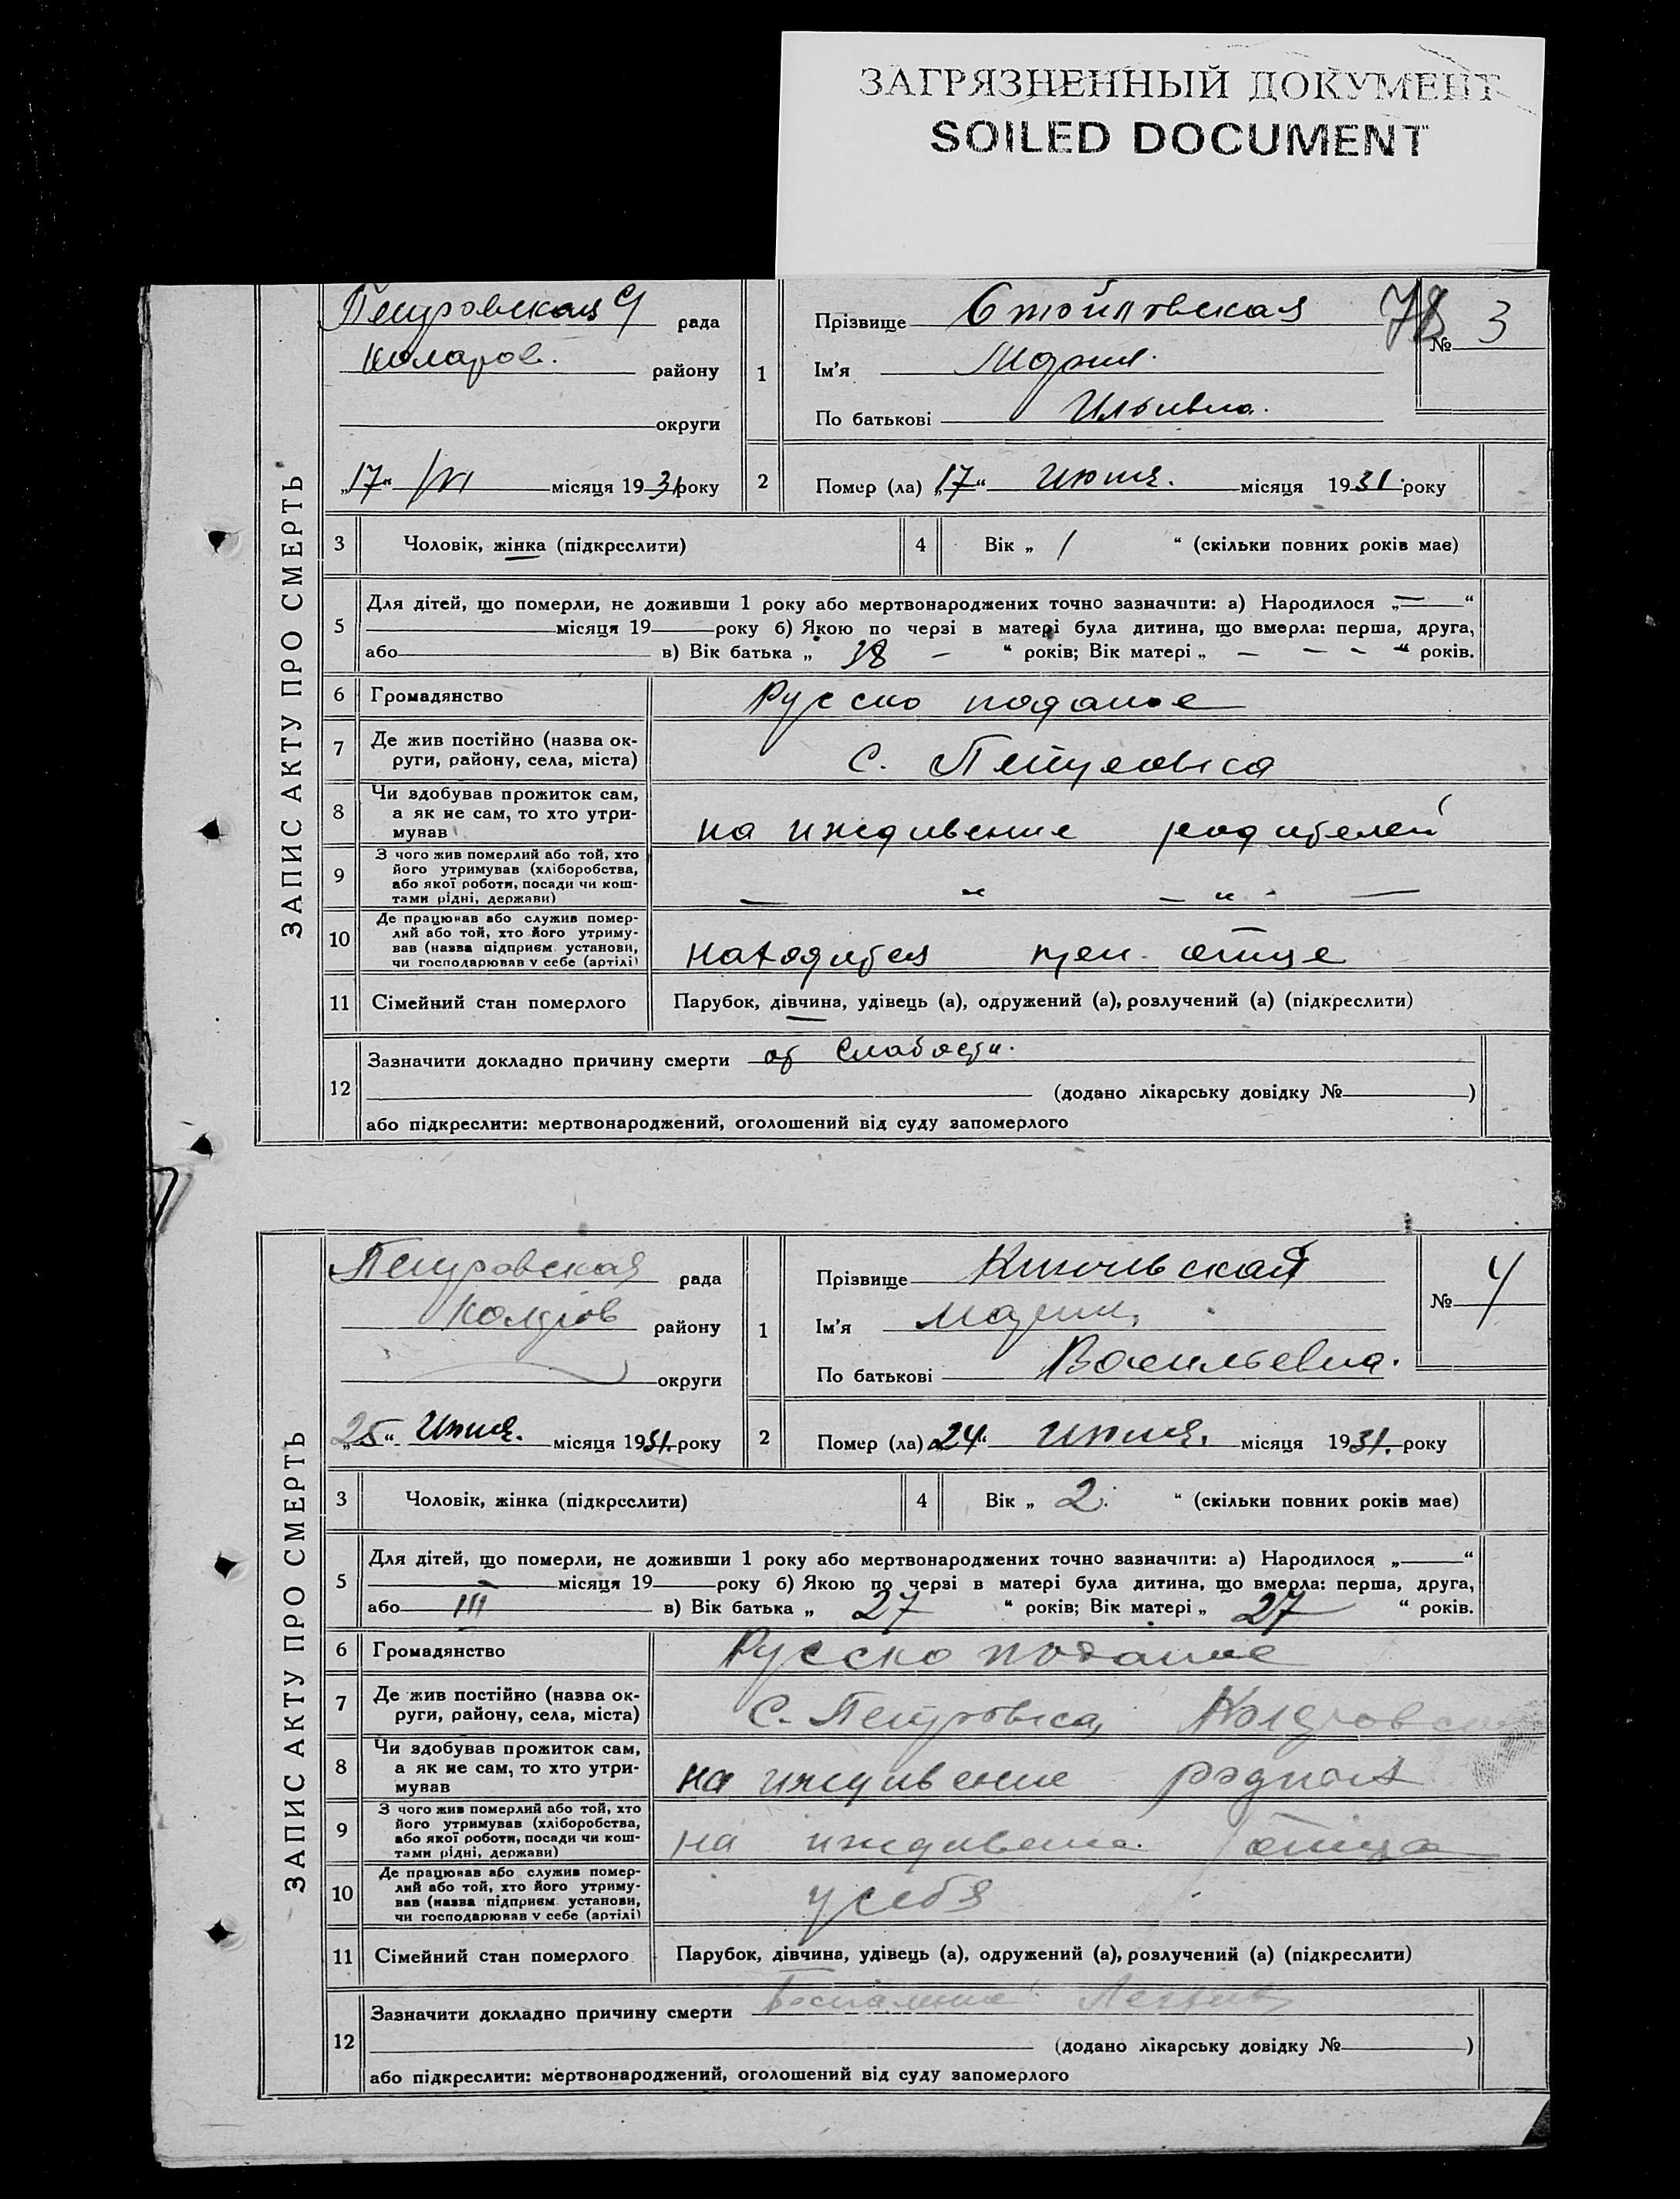 ЗАГРЯЗНЕННЫЙ ДОКУМЕНТ
SOILED DOCUMENT
ЗАПИС АКТУ ПРО СМЕРТЬ
Петровская рада
Коларов. району
округи
„17“ /VI місяця 1931 року
1
Прізвище
Ім'я Мария
По батькові Ильивна.
№ 3
2 Помер (ла) „17“ місяця 1931. року
3 Чоловік, жінка (підкреслити)
4 Вік „ 1 “ (скільки повних років має)
5
Для дітей, що померли, не доживши 1 року або мертвонароджених точно зазначити: а) Народилося „ — “
місяця 19 року б) Якою по черзі в матері була дитина, що вмерла: перша, друга,
або в) Вік батька „ 38 – “ років; Вік матері „ – – – “ років.
6 Громадянство Русско поданое
7 Де жив постійно (назва ок-
руги, району, села, міста) С. Петровка
8 Чи здобував прожиток сам,
а як не сам, то хто утри-
мував на иждивение родителей
9 З чого жив померлий або той, хто
його утримував (хліборобства,
або якої роботи, посади чи кош-
тами рідні, держави) — " — " —
10 Де працював або служив помер-
лий або той, хто його утриму-
вав (назва підприєм. установи,
чи господарював у себе (артілі) находится при отце
11 Сімейний стан померлого Парубок, дівчина, удівець (а), одружений (а), розлучений (а) (підкреслити)
12
Зазначити докладно причину смерти от слабости.
(додано лікарську довідку № )
або підкреслити: мертвонароджений, оголошений від суду запомерлого
ЗАПИС АКТУ ПРО СМЕРТЬ
Петровская рада
Коларов району
округи
„25“ Июня. місяця 1931. року
1
Прізвище
Ім'я Мария
По батькові Васильевна.
№ 4
2 Помер (ла) „24“ Июня. місяця 1931. року
3 Чоловік, жінка (підкреслити)
4 Вік „ 2. “ (скільки повних років має)
5
Для дітей, що померли, не доживши 1 року або мертвонароджених точно зазначити: а) Народилося „ “
місяця 19 року б) Якою по черзі в матері була дитина, що вмерла: перша, друга,
або III в) Вік батька „ 27 “ років; Вік матері „ 27 “ років.
6 Громадянство Русско подание
7 Де жив постійно (назва ок-
руги, району, села, міста) С. Петровка,
8 Чи здобував прожиток сам,
а як не сам, то хто утри-
мував на иждивение
9 З чого жив померлий або той, хто
його утримував (хліборобства,
або якої роботи, посади чи кош-
тами рідні, держави) на иждивение отца
10 Де працював або служив помер-
лий або той, хто його утриму-
вав (назва підприєм. установи,
чи господарював у себе (артілі) у себя
11 Сімейний стан померлого Парубок, дівчина, удівець (а), одружений (а), розлучений (а) (підкреслити)
12
Зазначити докладно причину смерти
(додано лікарську довідку № )
або підкреслити: мертвонароджений, оголошений від суду запомерлого